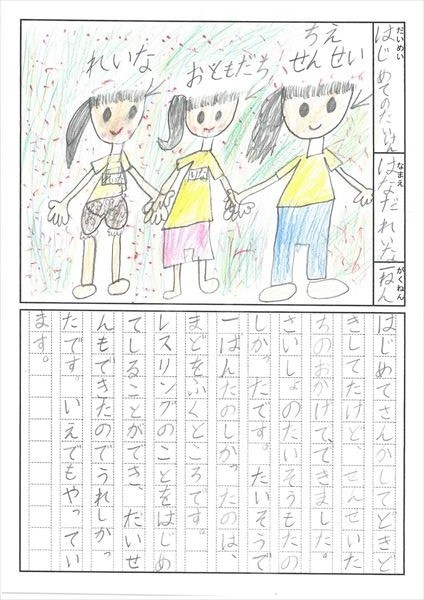 だいめい
はじめてのたいけん
なまえ
はなだ れいな
がくねん
一ねん
れいな
おともだち
ちえ
せんせい
はじめてさんかしてどきど
きしてたけど、せんせいた
ちのおかげで、できました。
さいしょのたいそうもたの
しかったです。たいそうで
一ばんたのしかったのは、
まどをふくところです。
レスリングのことをはじめ
てしることができ、たいせ
んもできたのでうれしかっ
たです。いえでもやってい
ます。